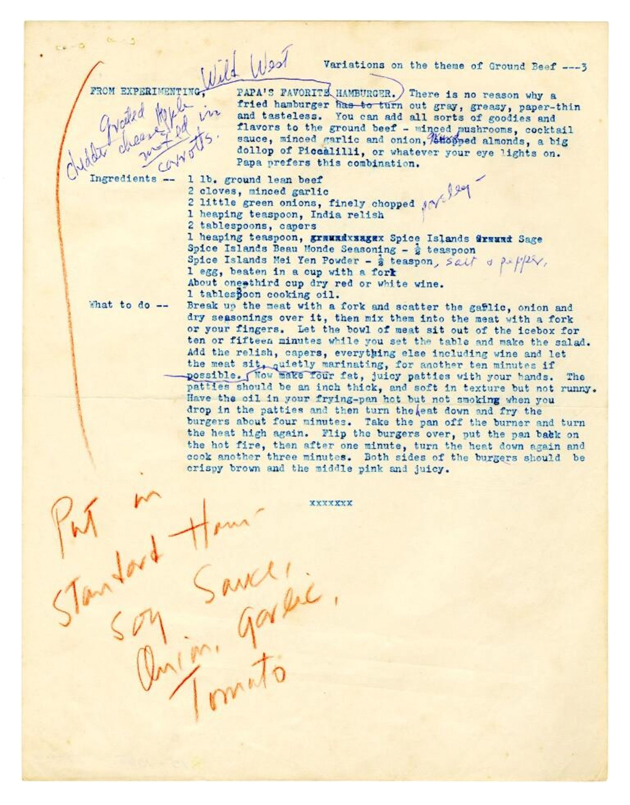 Wild West
Variations on the theme of Ground Beef ---3
FROM EXPERIMENTING, PAPA'S FAVORITE HAMBURGER. There is no reason why a
fried hamburger has to turn out gray, greasy, paper-thin
and tasteless. You can add all sorts of goodies and
flavors to the ground beef - minced mushrooms, cocktail
sauce, minced garlic and onion, chopped almonds, a big
dollop of Piccalilli, or whatever your eye lights on.
Papa prefers this combination.
grated apple
cheddar cheese
melted in
carrots.
Ingredients -- 1 lb. ground lean beef
2 cloves, minced garlic
2 little green onions, finely chopped parsley -
1 heaping teaspoon, India relish
2 tablespoons, capers
1 heaping teaspoon, Spice Islands Sage
Spice Islands Beau Monde Seasoning - ½ teaspoon
Spice Islands Mei Yen Powder - ½ teaspon, salt & pepper,
1 egg, beaten in a cup with a fork
About one third cup dry red or white wine.
1 tablespoon cooking oil.
What to do -- Break up the meat with a fork and scatter the garlic, onion and
dry seasonings over it, then mix them into the meat with a fork
or your fingers. Let the bowl of meat sit out of the icebox for
ten or fifteen minutes while you set the table and make the salad.
Add the relish, capers, everything else including wine and let
the meat sit, quietly marinating, for another ten minutes if
possible. Now make four fat, juicy patties with your hands. The
patties should be an inch thick, and soft in texture but not runny.
Have the oil in your frying-pan hot but not smoking when you
drop in the patties and then turn the heat down and fry the
burgers about four minutes. Take the pan off the burner and turn
the heat high again. Flip the burgers over, put the pan back on
the hot fire, then after one minute, turn the heat down again and
cook another three minutes. Both sides of the burgers should be
crispy brown and the middle pink and juicy.
xxxxxxx
Put in
Standard Ham-
Soy Sauce,
Onion, garlic,
Tomato